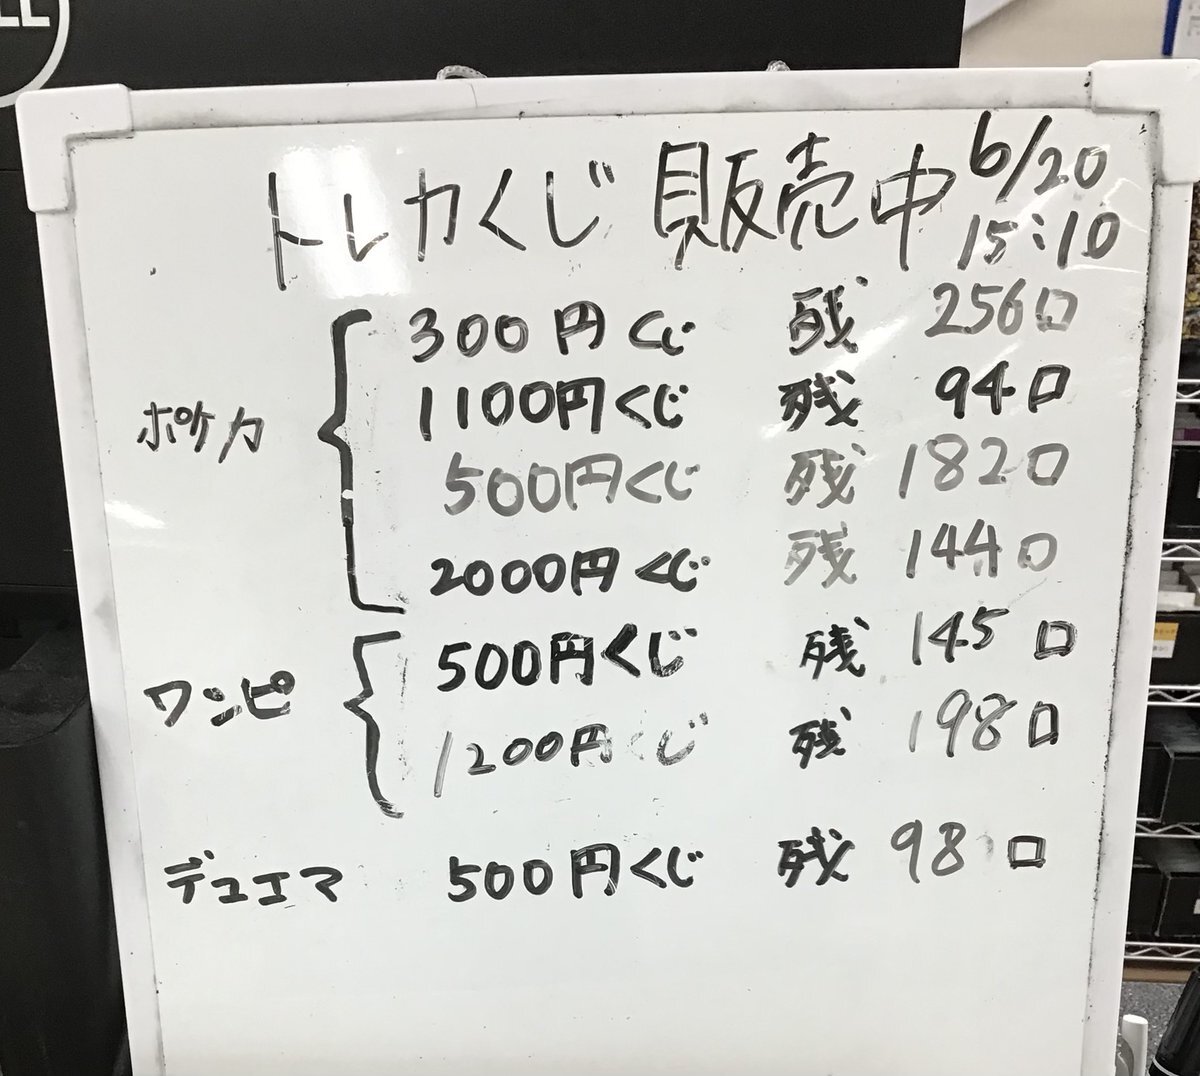 LL
トレカくじ 販売中 6/20
15:10
ポケカ
300円くじ 残 256口
1100円くじ 残 94口
500円くじ 残 182口
2000円くじ 残 144口
ワンピ
500円くじ 残 145口
1200円くじ 残 198口
デュエマ 500円くじ 残 98口